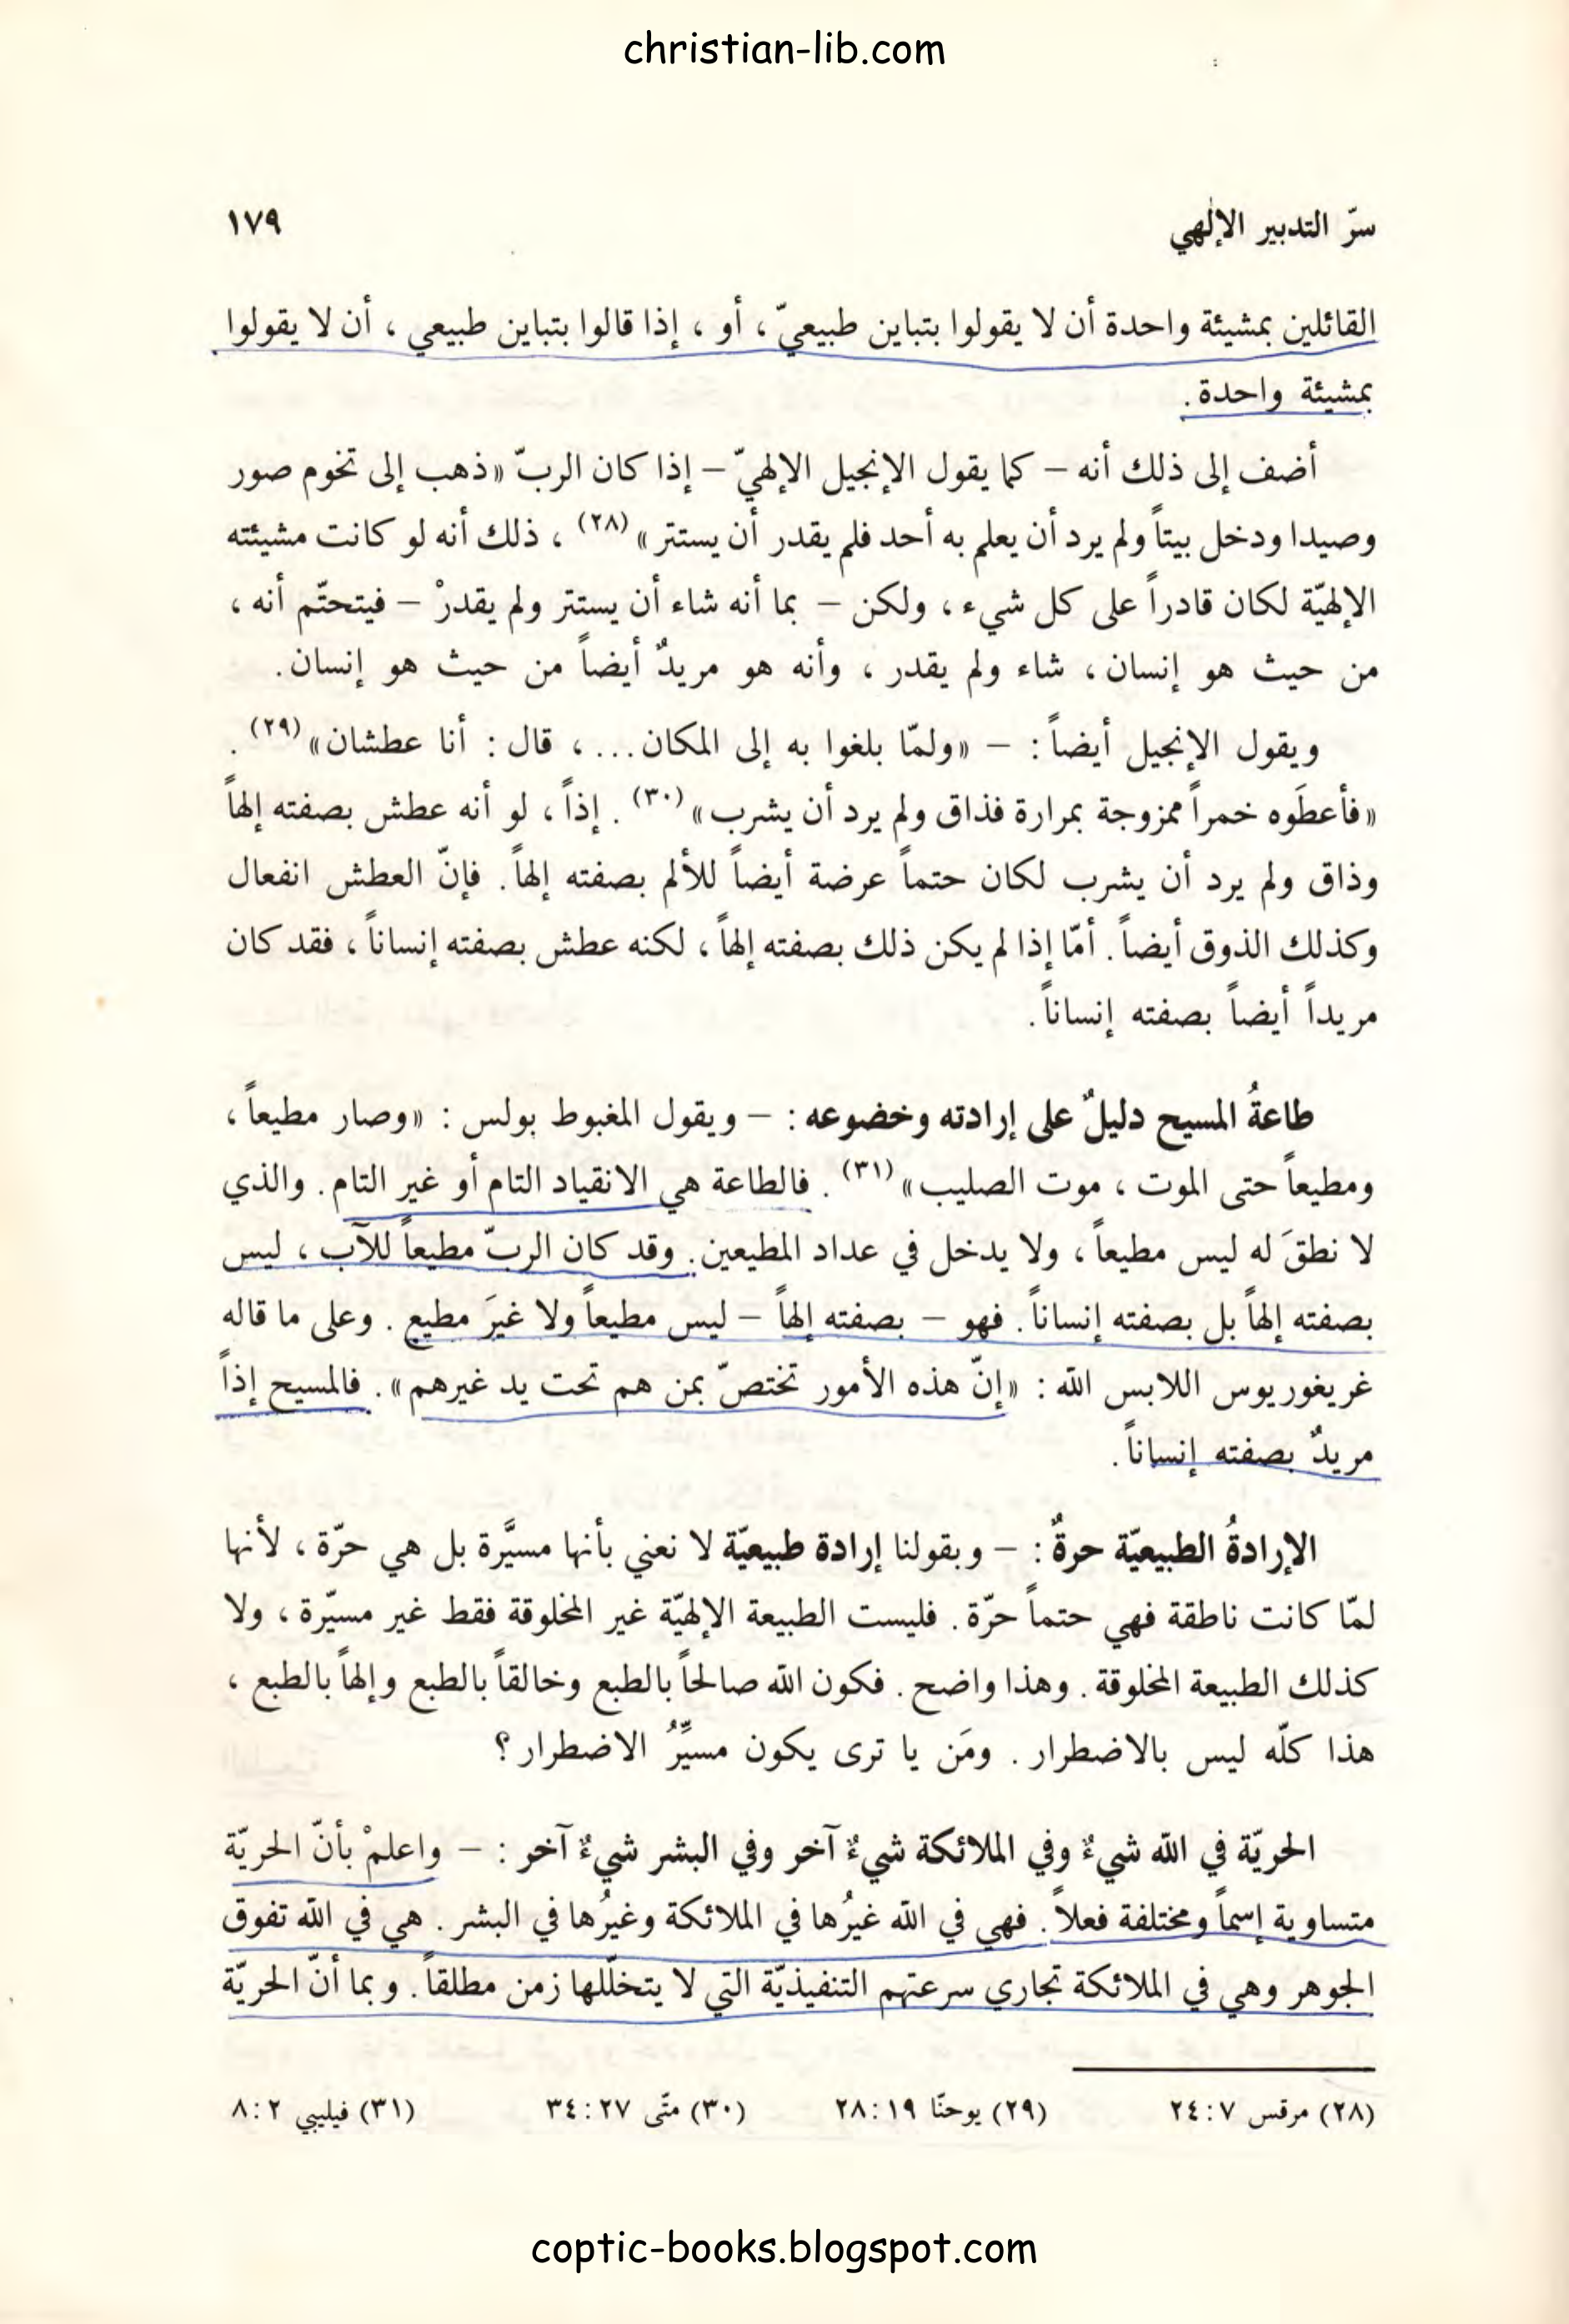 christian-lib.com
سرّ التدبير الإلٰهي ١٧٩
القائلين بمشيئة واحدة أن لا يقولوا بتباين طبيعيّ ، أو ، إذا قالوا بتباين طبيعي ، أن لا يقولوا
بمشيئة واحدة .
أضف إلى ذلك أنه – كما يقول الإنجيل الإلهيّ – إذا كان الربّ «ذهب إلى تخوم صور
وصيدا ودخل بيتاً ولم يرد أن يعلم به أحد فلم يقدر أن يستتر» (٢٨) ، ذلك أنه لو كانت مشيئته
الإلهيّة لكان قادراً على كل شيء ، ولكن – بما أنه شاء أن يستتر ولم يقدرْ – فيتحتّم أنه ،
من حيث هو إنسان ، شاء ولم يقدر ، وأنه هو مريدٌ أيضاً من حيث هو إنسان .
ويقول الإنجيل أيضاً : – «ولمّا بلغوا به إلى المكان ... ، قال : أنا عطشان» (٢٩) .
«فأعطَوه خمراً ممزوجة بمرارة فذاق ولم يرد أن يشرب» (٣٠) . إذاً ، لو أنه عطش بصفته إلهاً
وذاق ولم يرد أن يشرب لكان حتماً عرضة أيضاً للألم بصفته إلهاً . فإنّ العطش انفعال
وكذلك الذوق أيضاً . أمّا إذا لم يكن ذلك بصفته إلهاً ، لكنه عطش بصفته إنساناً ، فقد كان
مريداً أيضاً بصفته إنساناً .
طاعةُ المسيح دليلٌ على إرادته وخضوعه : – ويقول المغبوط بولس : «وصار مطيعاً ،
ومطيعاً حتى الموت ، موت الصليب» (٣١) . فالطاعة هي الانقياد التام أو غير التام . والذي
لا نطقَ له ليس مطيعاً ، ولا يدخل في عداد المطيعين . وقد كان الربّ مطيعاً للآب ، ليس
بصفته إلهاً بل بصفته إنساناً . فهو – بصفته إلهاً – ليس مطيعاً ولا غيرَ مطيع . وعلى ما قاله
غريغوريوس اللابس الله : «إنّ هذه الأمور تختصّ بمن هم تحت يد غيرهم» . فالمسيح إذاً
مريدٌ بصفته إنساناً .
الإرادةُ الطبيعيّة حرةٌ : – وبقولنا إرادة طبيعيّة لا نعني بأنها مسيَّرة بل هي حرّة ، لأنها
لمّا كانت ناطقة فهي حتماً حرّة . فليست الطبيعة الإلهيّة غير المخلوقة فقط غير مسيّرة ، ولا
كذلك الطبيعة المخلوقة . وهذا واضح . فكون الله صالحاً بالطبع وخالقاً بالطبع وإلهاً بالطبع ،
هذا كلّه ليس بالاضطرار . ومَن يا ترى يكون مسيِّرُ الاضطرار ؟
الحريّة في الله شيءٌ وفي الملائكة شيءٌ آخر وفي البشر شيءٌ آخر : – واعلمْ بأنّ الحريّة
متساوية إسماً ومختلفة فعلاً . فهي في الله غيرُها في الملائكة وغيرُها في البشر . هي في الله تفوق
الجوهر وهي في الملائكة تجاري سرعتهم التنفيذيّة التي لا يتخلّلها زمن مطلقاً . وبما أنّ الحريّة
(٢٨) مرقس ٧ : ٢٤ (٢٩) يوحنّا ١٩ : ٢٨ (٣٠) متّى ٢٧ : ٣٤ (٣١) فيليبي ٢ : ٨
coptic-books.blogspot.com